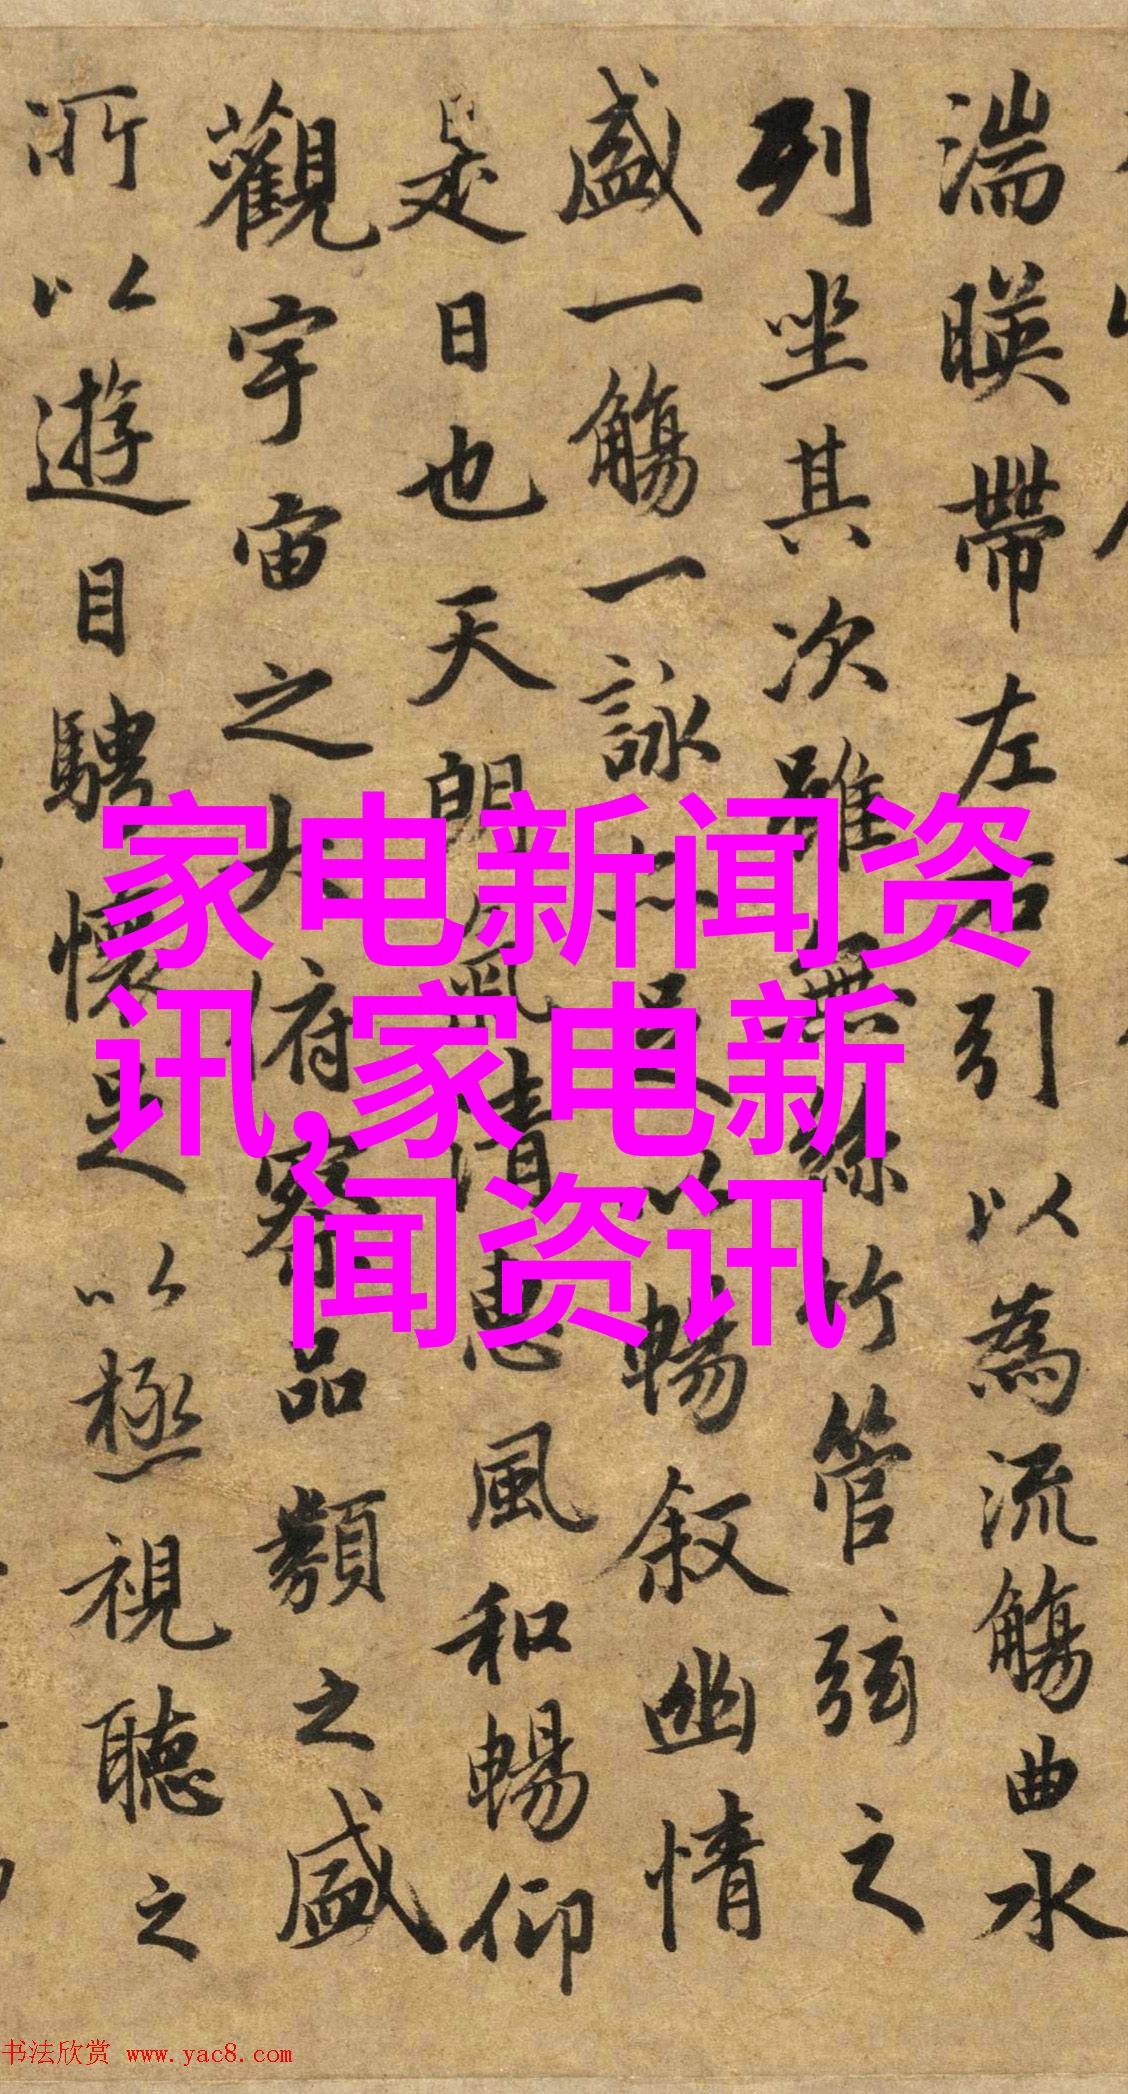 湍暎帶左右引以為流觴曲水
列坐其次雖無絲竹管弦之
盛一觴一詠亦足以暢叙幽情
是日也天朗氣清惠風和暢仰
觀宇宙之大俯察品類之盛
所以遊目騁懷足以極視聽之
家电新闻资
讯,家电新
闻资讯
书法欣赏 www.yac8.com